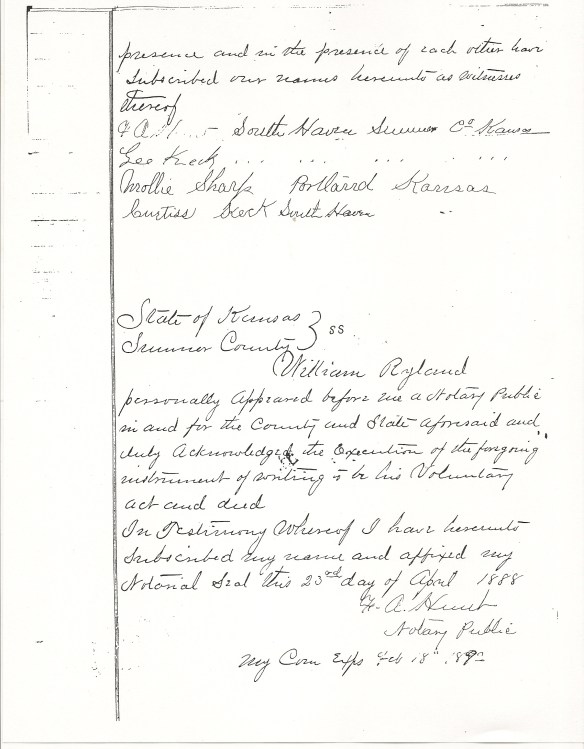 presence and in the presence of each other have
Subscribed our names hereunto as witnesses
thereof
F A H - South Haven Sumner Co Kansas
Geo Keck ... ... ... ...
Mollie Sharp Portland Kansas
Curtiss Keck South Haven "
State of Kansas } ss
Sumner County
William Ryland
personally Appeared before me a Notary Public
in and for the County and State aforesaid and
duly Acknowledged the Execution of the foregoing
instrument of writing to be his Voluntary
act and deed
In Testimony Whereof I have hereunto
Subscribed my name and affixed my
Notarial Seal this 23rd day of April 1888
F. A. Hunt
Notary Public
My Com Exps Feb 18"